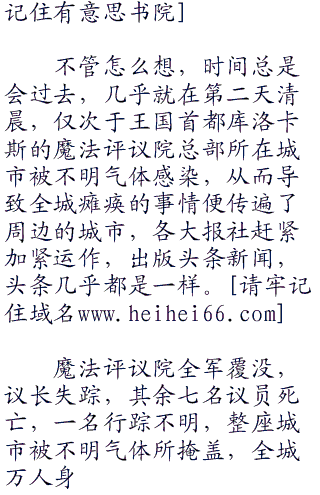 记住有意思书院]
不管怎么想，时间总是
会过去，几乎就在第二天清
晨，仅次于王国首都库洛卡
斯的魔法评议院总部所在城
市被不明气体感染，从而导
致全城瘫痪的事情便传遍了
周边的城市，各大报社赶紧
加紧运作，出版头条新闻，
头条几乎都是一样。[请牢记
住域名www.heihei66.com]
魔法评议院全军覆没，
议长失踪，其余七名议员死
亡，一名行踪不明，整座城
市被不明气体所掩盖，全城
万人身